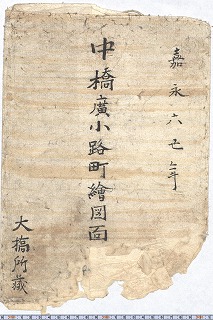 嘉永六丑年
中橋廣小路町繪図面
大橋所蔵